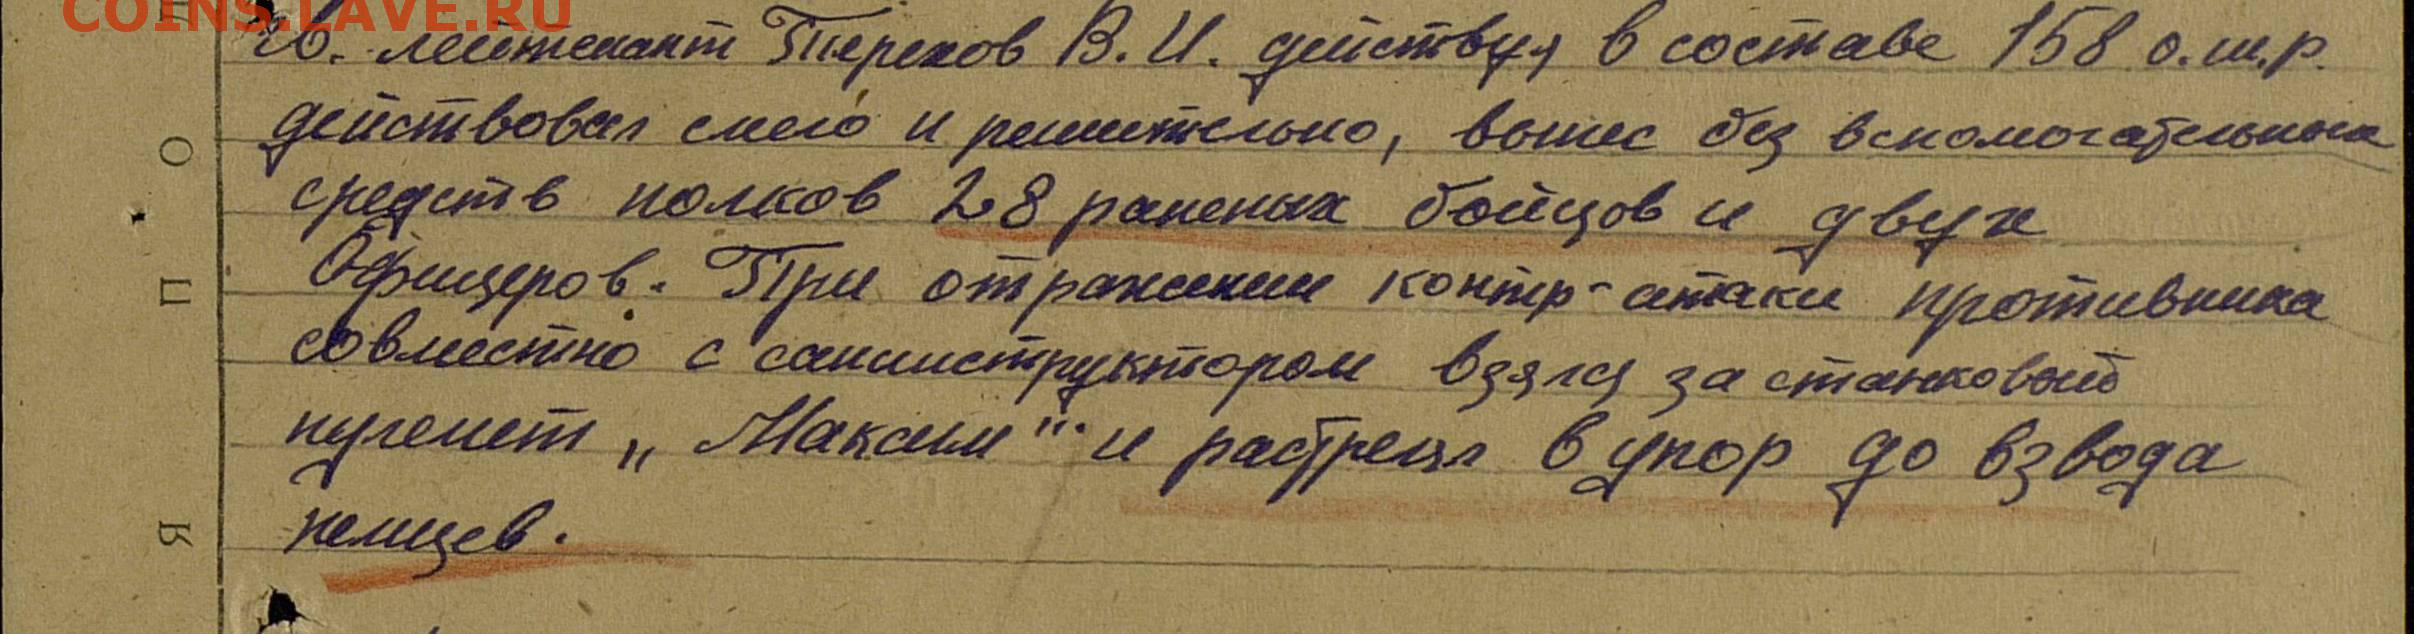 COINS.LAVE.RU
лейтенант Терехов В. И. действуя в составе 158 о.ш.р.
действовал смело и решительно, вынес без вспомогательных
средств полков 28 раненых бойцов и двух
Офицеров. При отражении контр-атаки противника
совместно с санинструктором взялся за станковый
пулемет „Максим" и растрелял в упор до взвода
немцев.
О
П
Я